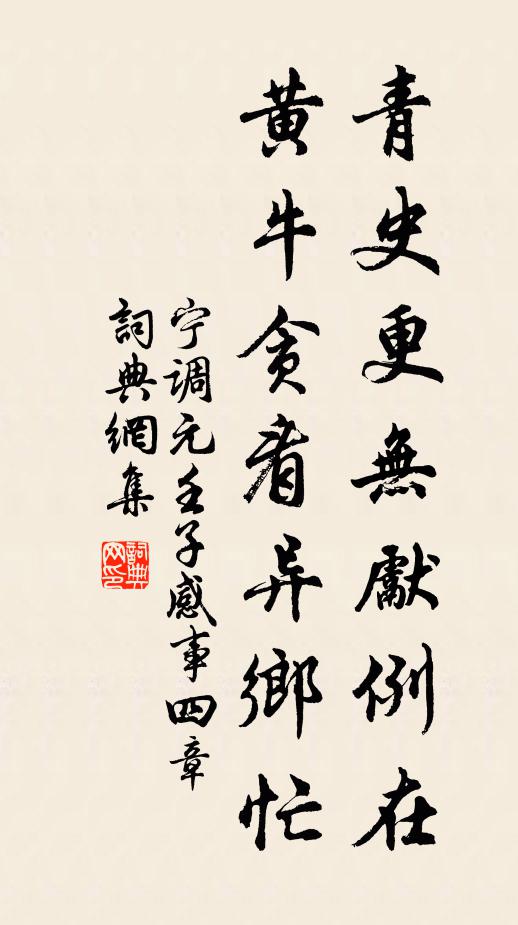 青史更無獻例在
黃牛貪看异鄉忙
宁调元壬子感事四章
詞典網集
詞典網印